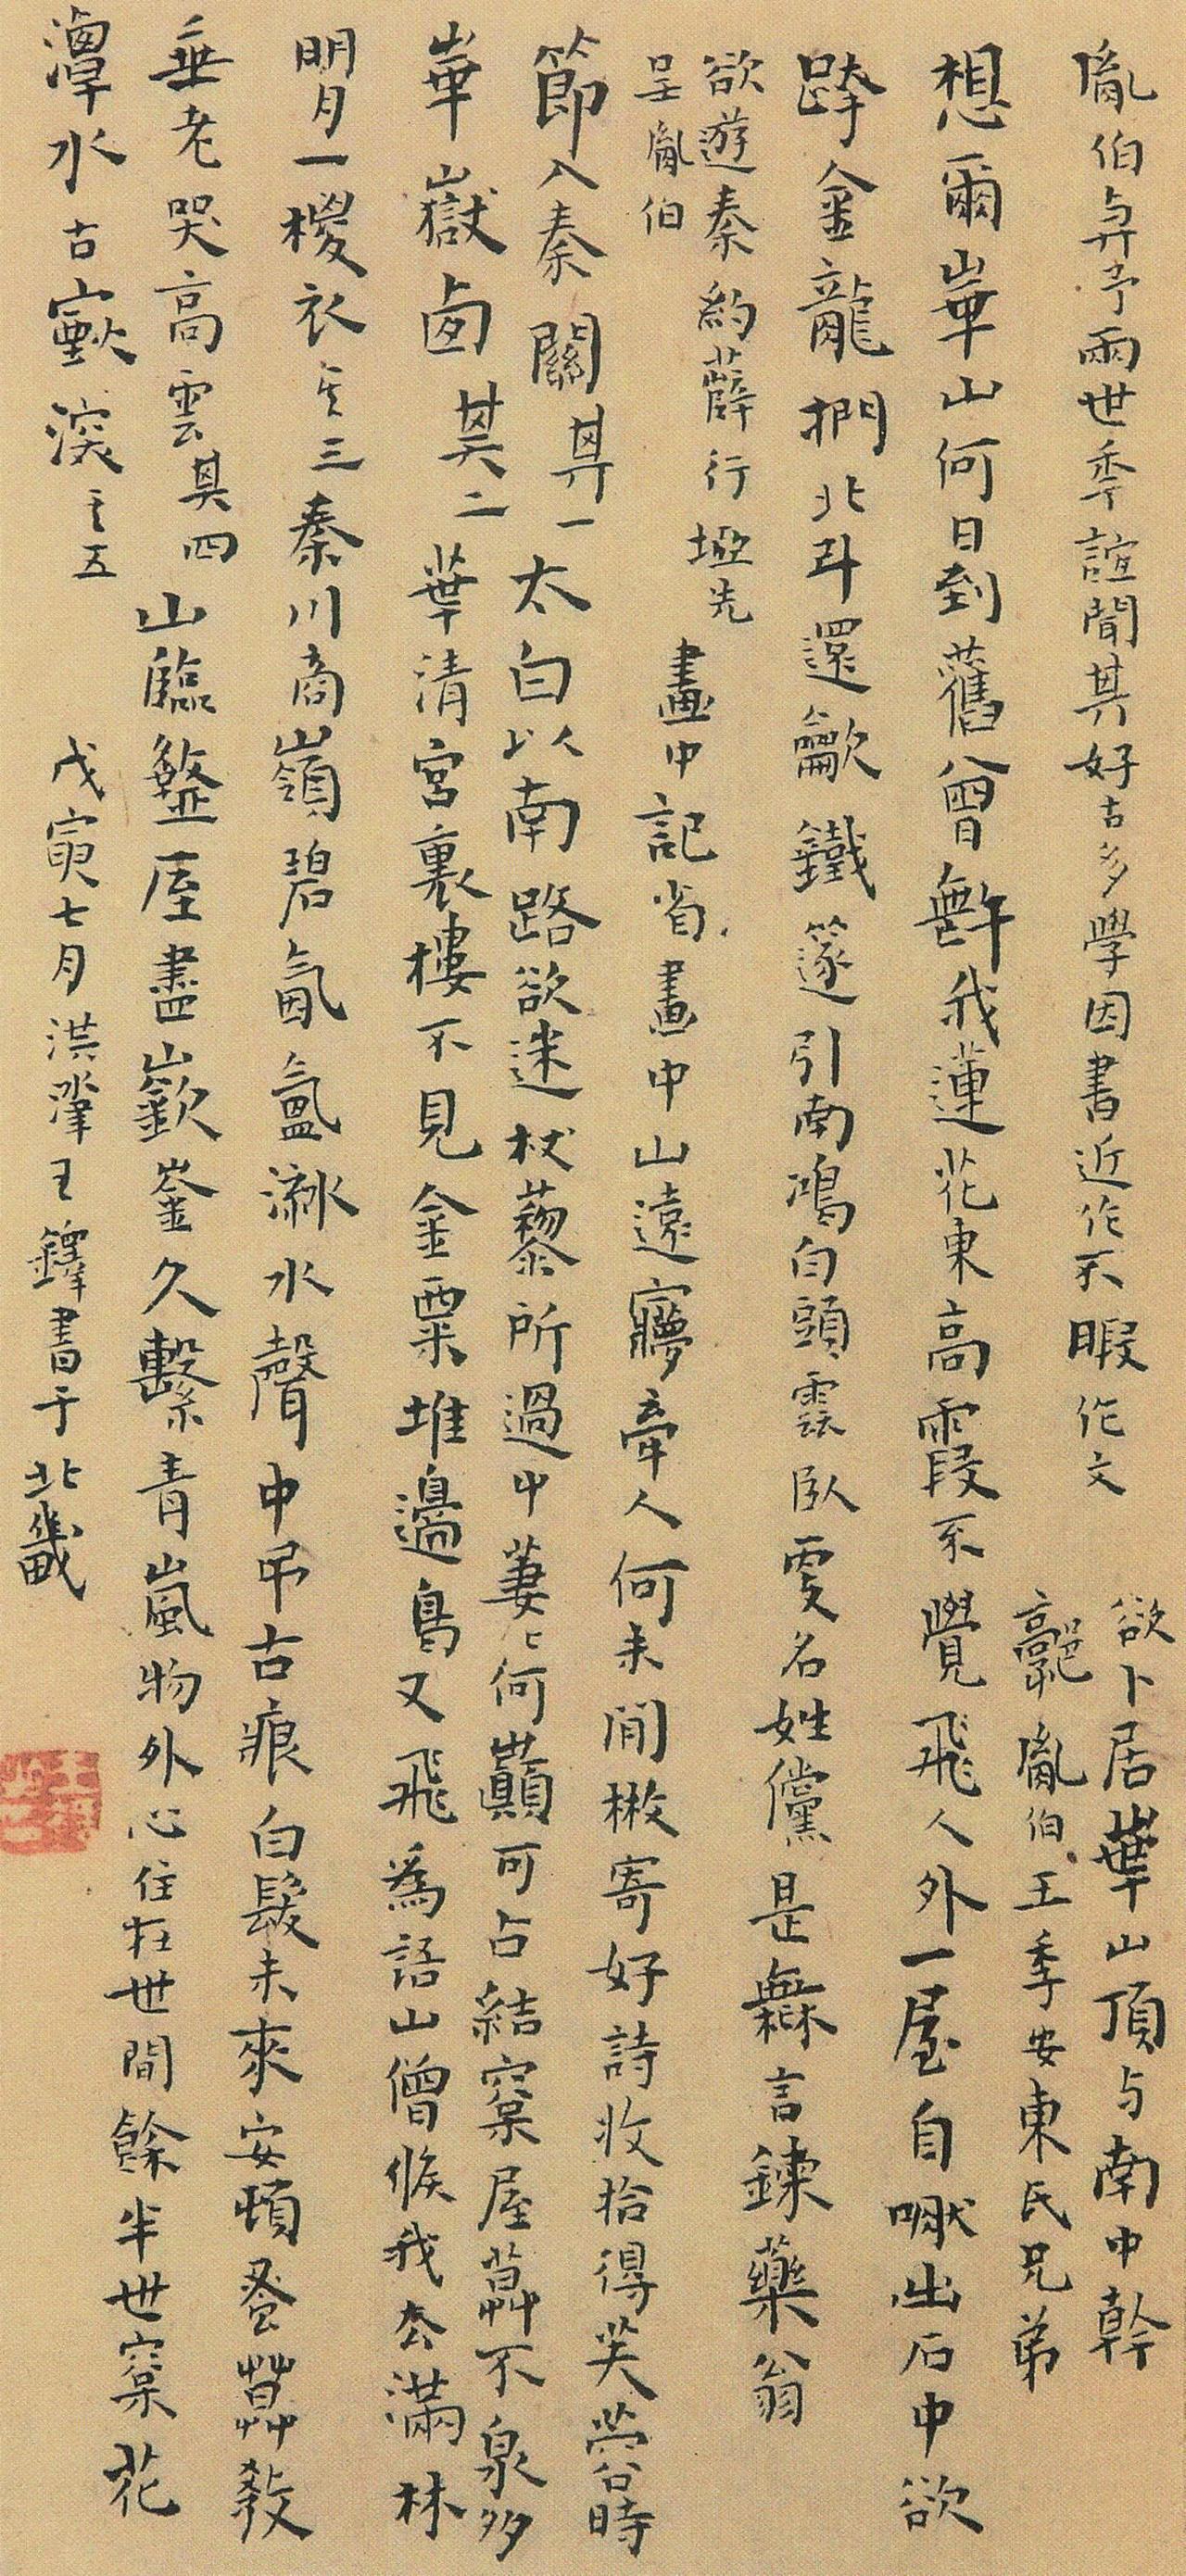 胤伯與予兩世季誼聞其好古多學因書近作不暇作文
欲卜居華山頂与南中幹
郭胤伯王季安東氏兄弟
想爾崋山何日到舊曾無許我蓮花東高霞不覺飛人外一屋自啾出石中欲
跨金龍捫北斗還龡鐵篴引南鴻白頭雲臥叜名姓儻是無言鍊藥翁
欲遊秦約薛行塢先
呈胤伯
畫中記省畫中山遠寱牽人何未閒檄寄好詩收拾得芺蓉時
節入秦關其一太白以南路欲迷杖藜所過中萋〻何巔可占結窠屋葬不泉多
崋嶽鹵其二華清宮裏樓不見金粟堆邊鳥又飛為語山僧候我厺滿林
明月一椶衣其三秦川商嶺碧氤氳淵水聲中弔古痕白髮未來安頓蚤葬教
垂老哭高雲其四山臨盩厔盡嶔崟久繫青嵐物外心住在世間餘半世窠花
潭水古寱深其五
戊寅七月洪洚王鐸書于北畿